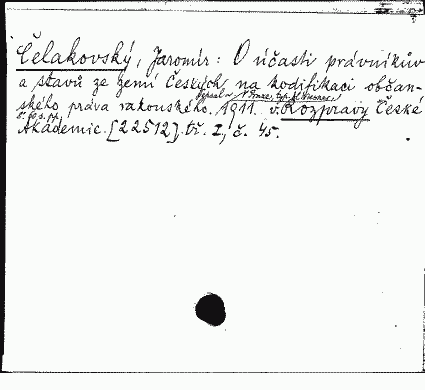 Čelakovský, Jaromír: O účasti právníkův
a stavů ze zemí Českých na kodifikaci občan-
ského práva rakouského. 1911. v. Rozpravy České
Akademie. [22512] tř. I, č. 45.